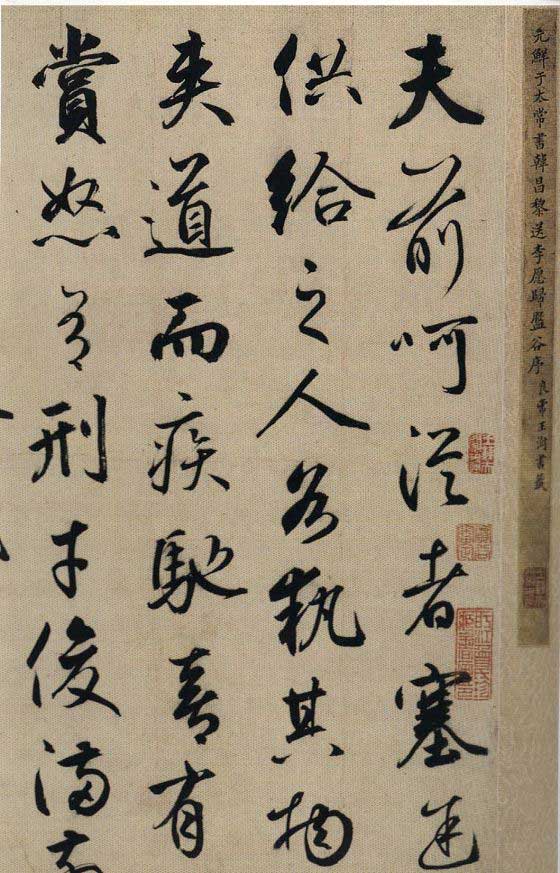 元鮮于太常書韓昌黎送李愿歸盤谷序 良常王澍書籤
夫前呵從者塞途
供給之人各執其物
夾道而疾馳喜有
賞怒有刑才俊滿前